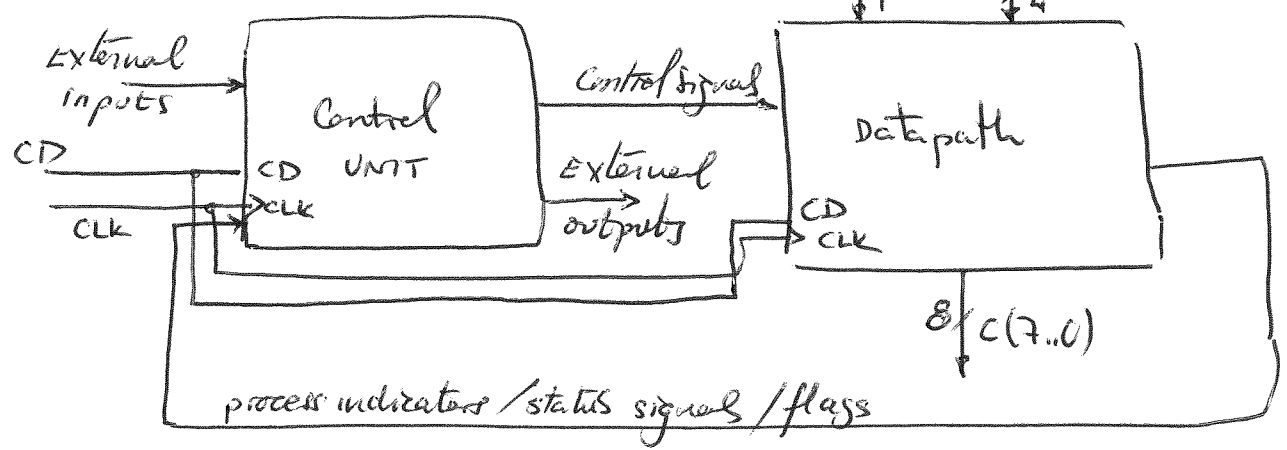 External
inputs
CD
CLK
Control
UNIT
CD
CLK
Control signals
External
outputs
Datapath
CD
CLK
8
C(7..0)
process indicators / status signals / flags